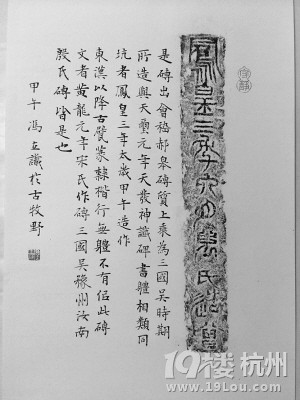 鳳皇三年六月萬氏造
是磚出會稽郝皋磚質上乘為三國吳時期
所造與天璽元年天發神讖碑書體相類同
坑者鳳皇三年太歲甲午造作
東漢以降古甓篆隸楷行無體不有佀此磚
文者黃龍元年宋氏作磚三國吳豫州汝南
殷氏磚皆是也
甲午馮立識於古牧野
19楼 杭州
www.19lou.com